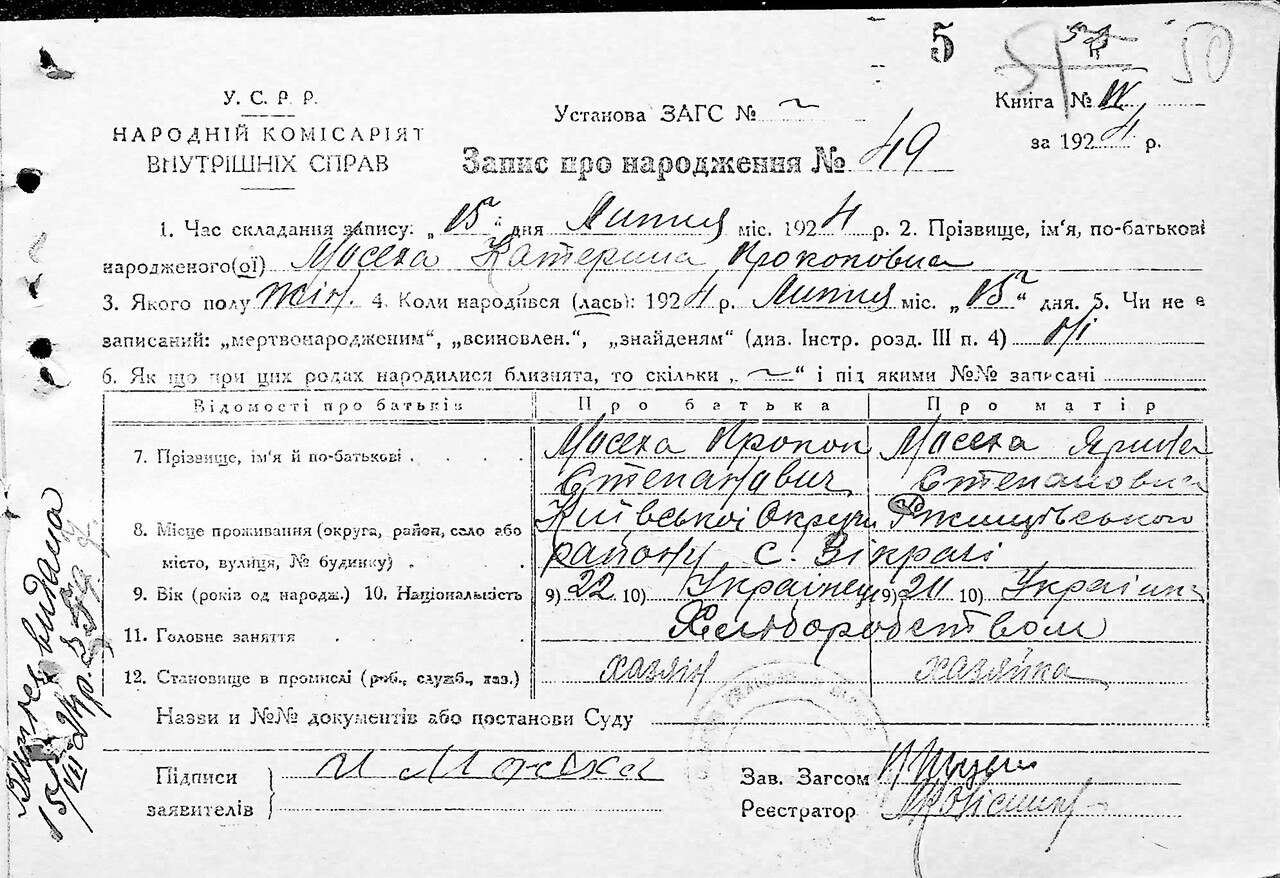 5 51 50
У. С. Р. Р.
НАРОДНІЙ КОМІСАРІЯТ
ВНУТРІШНІХ СПРАВ
Установа ЗАГС № ~
Книга № IV
за 1924 р.
Запис про народження № 49
1. Час складання запису: „15“ дня Липня міс. 1924 р. 2. Прізвище, ім'я, по-батькові
народженого(ої) Мосеха Катерина Прокоповна
3. Якого полу жін. 4. Коли народився (лась): 1924 р. Липня міс. „15“ дня. 5. Чи не є
записаний: „мертвонародженим“, „всиновлен.“, „знайденям“ (див. Інстр. розд. III п. 4) ні
6. Як що при цих родах народилися близнята, то скільки „ ~ “ і під якими №№ записані
Відомості про батьків Про батька Про матір
7. Прізвище, ім'я й по-батькові . . . . Мосеха Прокоп Мосеха Ярина
Степанович Степановна
8. Місце проживання (округа, район, село або Київської Округи Ржищівського
місто, вулиця, № будинку) . . . району с. Зікрачі
9. Вік (років од народж.) 10. Національність 9) 22 10) Українець 9) 20 10) Українка
11. Головне заняття . . . . Хельборобством
12. Становище в промислі (роб., служб., газ.) хазяїн хазяйка
Назви и №№ документів або постанови Суду
Підписи
заявителів
и Мосеха
Зав. Загсом
Реєстратор
видана
15/VII 24 р.